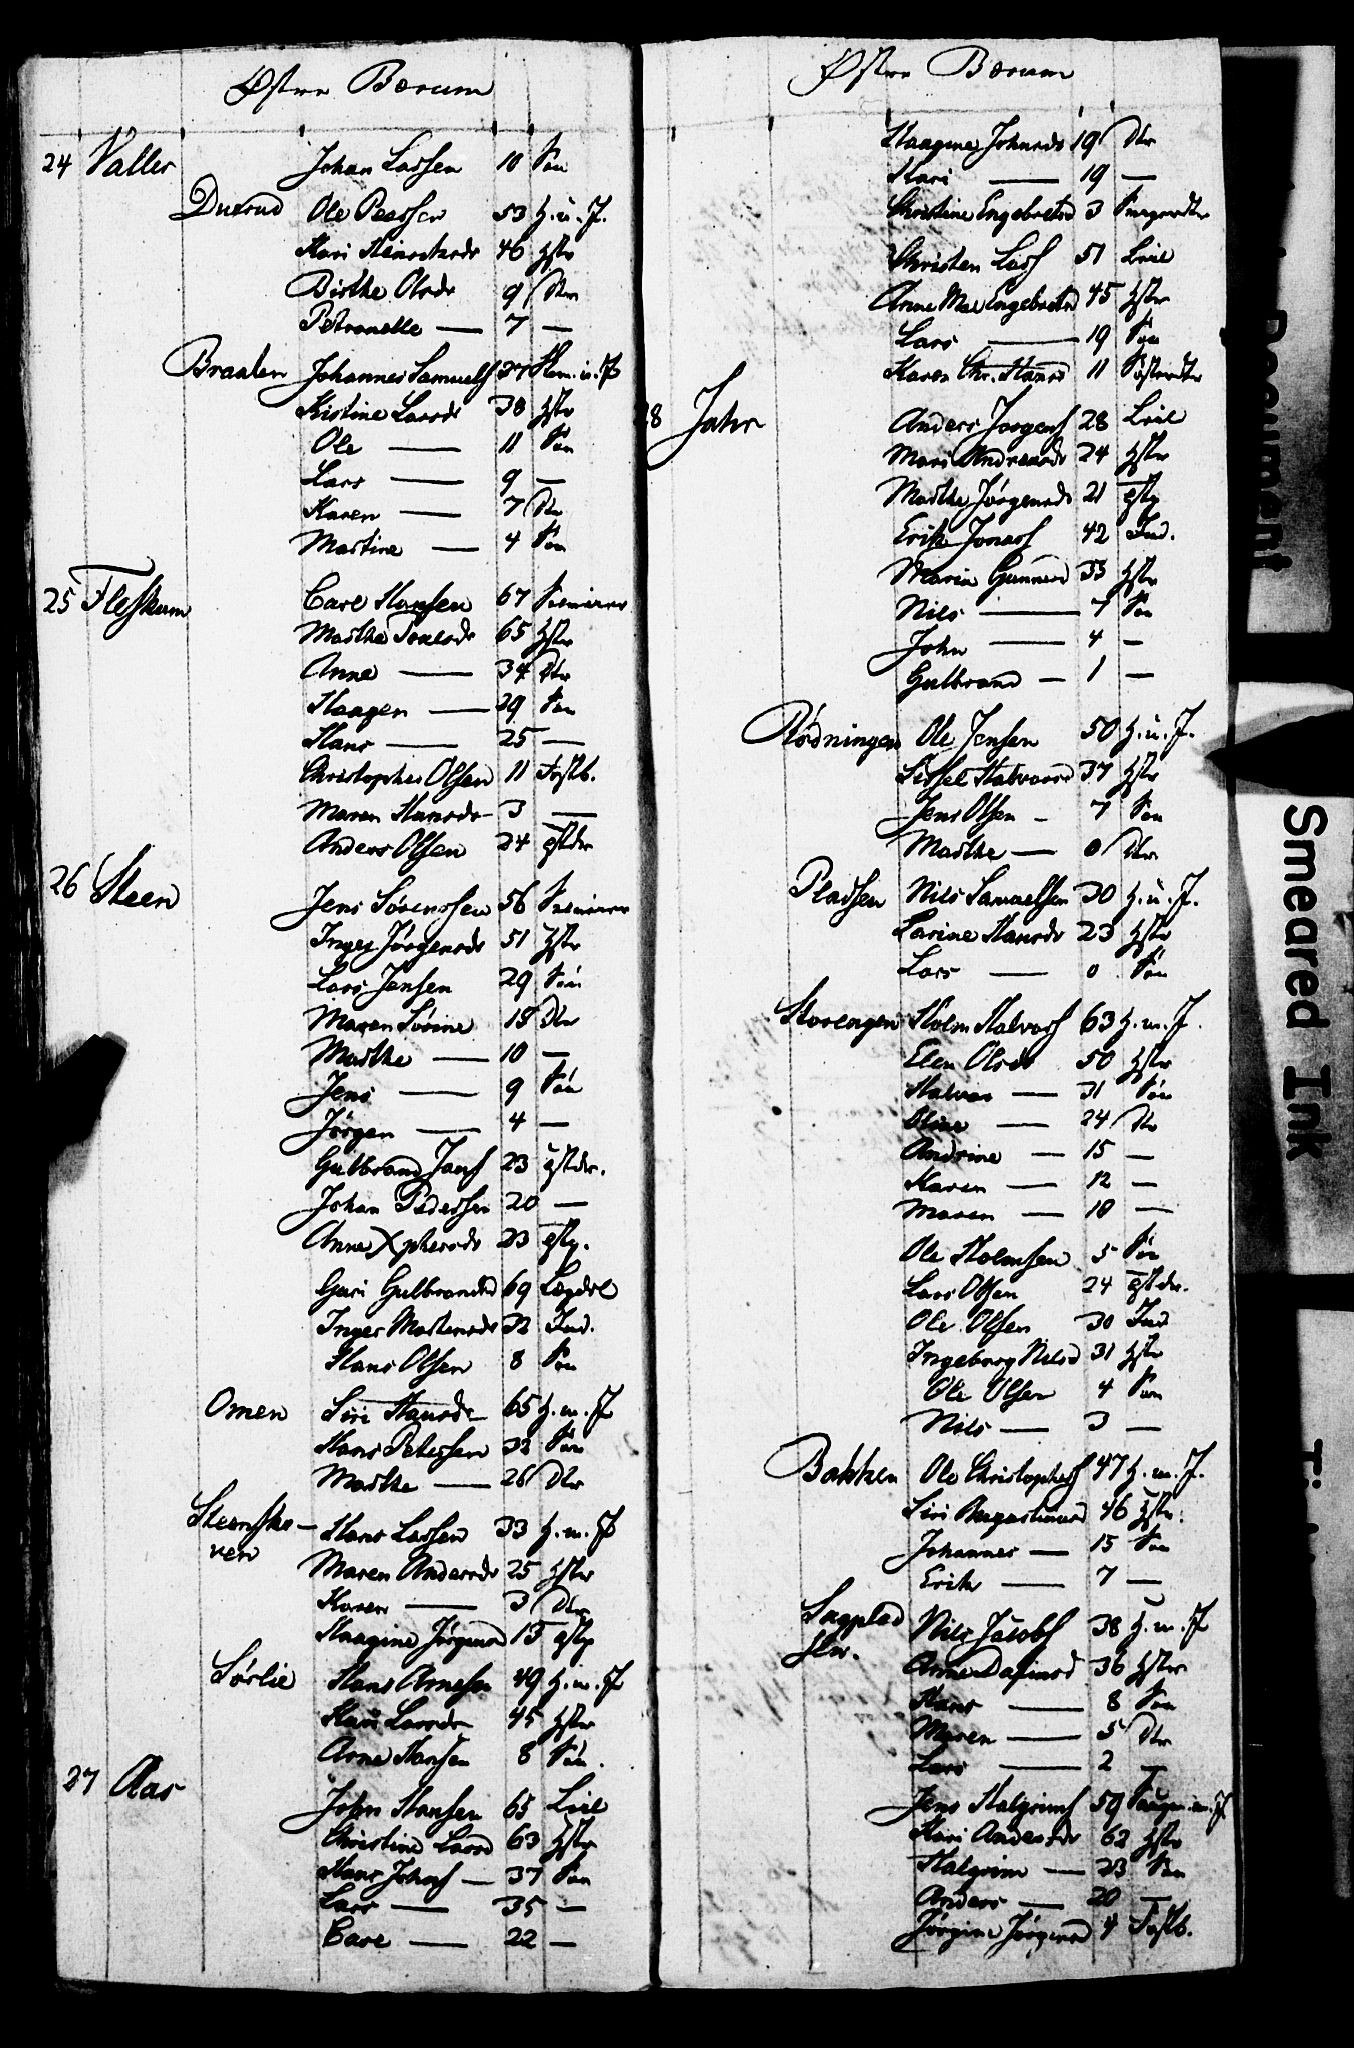 Østre Bærum
24 Valler Johan Larsen 10 Søn
Duerud Ole Pedersen 53 H. m. J.
Kari 46 Hstr
Birthe Olsdr 9 Dtr
Petronelle — 7 —
Braaten Johannes Samuels 37 m. J
Kistine Larsdr 38 Hstr
Ole — 11 Søn
Lars — 9 —
Karen — 7 Dtr
Martine — 4 Søn
25 Fleskum Carl Hansen 67
Marthe 65 Hstr
Anne — 34 Dtr
Haagen — 29 Søn
Hans — 25 —
Christopher Olsen 11 Fostb.
Maren Hansdr 3 —
Anders Olsen 24 tjstdr
26 Steen Jens Sørenssen 56
Inger Jørgensdr 51 Hstr
Lars Jensen 29 Søn
Maren Sørine 18 Dtr
Marthe — 10 —
Jens — 9 Søn
Jørgen — 4 —
Gulbrand Jans 23 tjstdr.
Johan Pedersen 20 —
Anne Xphersdr 23 tjstp.
Guri Gulbrandsd 69 Lægdsl
Inger Mortensdr 32 Ind.
Hans Olsen 8 Søn
Omen Siri Hansdr 65 H. m. J
Hans Petersen 32 Søn
Marthe — 26 Dtr
Steensske-
ven Hans Larsen 33 H. m. J
Maren Andersdr 25 Hstr
Karen — 3 Dtr
Haagine Jørgensd 15 tjstp
Sørlie Hans Arnesen 49 H. m. J
Kari Larsdr 45 Hstr
Arne Hansen 8 Søn.
27 Aas John Hansen 65 Leil
Christine Larsd 63 Hstr
Hans Johns — 37 Søn
Lars — 35 —
Carl — 22 —
Østre Bærum
Haagine Johnsdr 19 Dtr
Kari — 19 —
Christine Engebretsd 3
Christen Lars 51 Leil
Anne Mar Engebretsd 45 Hstr
Lars — 19 Søn
Karen Chr. Hansd 11
28 Jahr Anders Jørgens 28 Leil
Mari Andreasdr 24 Hstr
Marthe Jørgensdr 21 tjstp
Erik Jonas 42 Ind.
Maria Gunnersd 33 Hstr
Nils — 7 Søn
John — 4 —
Gulbrand — 1 —
Rødningen Ole Jensen 50 H. m. J.
Sissel Halvorsd 37 Hstr
Jens Olsen — 7 Søn
Marthe — 0 Dtr
Pladsen Nils Samuelsen 30 H. m. J.
Larine Hansdr 23 Hstr
Lars — 0 Søn
Storengen Holm Halvors 63 H. m. J.
Elen Olsdr 50 Hstr
Halvor — 31 Søn
Oline — 24 Dtr
Andrine — 15 —
Karen — 12 —
Maren — 10 —
Ole Holmsen 5 Søn
Lars Olsen 24 tjstdr.
Ole Olsen 30 Ind
Ingeborg Nilsd 31 Hstr
Ole Olsen 4 Søn
Nils — 3 —
Bakken Ole Christophers 47 H. m. J.
Siri 46 Hstr.
Johannes — 15 Søn
Erik — 7 —
Sagplad
sen. Nils Jacobs 38 H. m. J
Anne 36 Hstr
Hans — 8 Søn
Maren — 5 Dtr
Lars — 2 —
Jens Halgrims 59 m. J
Kari Andersdr 62 Hstr
Halgrim — 23 Søn
Anders — 20 —
Jørgine Jørgensd 4 Fostb.
Document
Smeared Ink